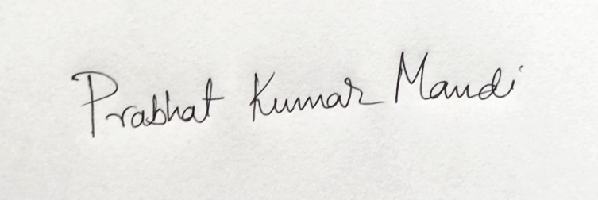 Prabhat Kumar Mandi